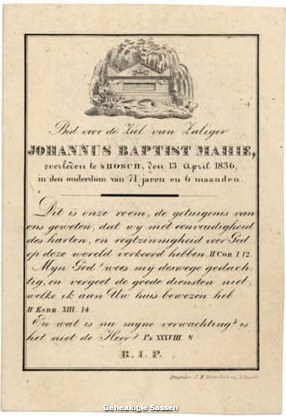 Bid voor de Ziel van Zaliger
JOHANNUS BAPTIST MAHIE,
overleden te 'sBOSCH, den 13 April 1836,
in den ouderdom van 71 jaren en 6 maanden.
Dit is onze roem, de getuigenis van
ons geweten, dat wy met eenvoudigheid
des harten, en regtzinnigheid voor God
op deze wereld verkeerd hebben. II Cor I 12
Myn God! wees my deswege gedach-
tig, en vergeet de goede diensten niet,
welke ik aan Uw huis bewezen heb
II Esdr XIII 14
En wat is nu myne verwachting? is
het niet de Heer? Ps XXXVIII. 8
R. I. P.
Genealogie Sassen